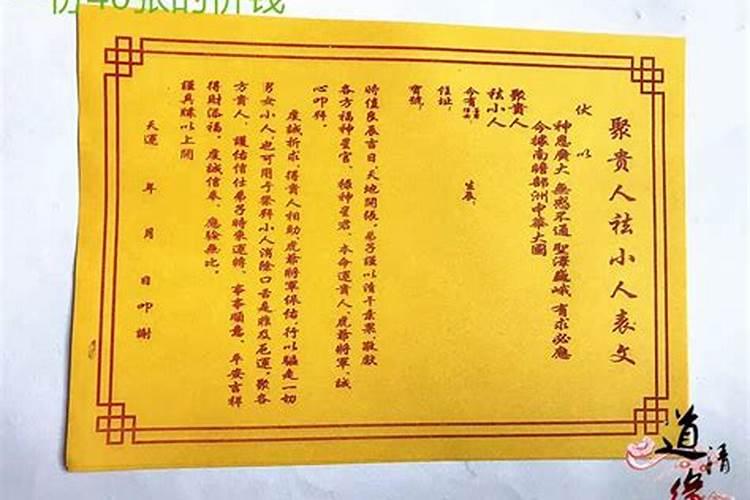 份40张的价钱
聚貴人祛小人表文
伏以
神恩廣大 無愿不通 聖澤巍峨 有求必應
今據南瞻部洲中華大國
聚貴人
祛小人
今有
生辰
住址
寶號
時值良辰吉日,天地開張,弟子謹以清干素果敬獻
各方福神星官、祿神星君、本命運貴人,虎爺將軍,誠
心叩拜。
虔誠祈求,得貴人相助虎爺將軍保佑 行以驅走一切
男女小人,也可用于祭拜小人消除口舌是非及厄運,聚各
方貴人,護佑信仕弟子時來運轉、事事順意、平安吉祥
得財添福。虔誠信奉,應驗無比。
謹具牒以上聞
天運 年 月 日叩謝
道
清
缘